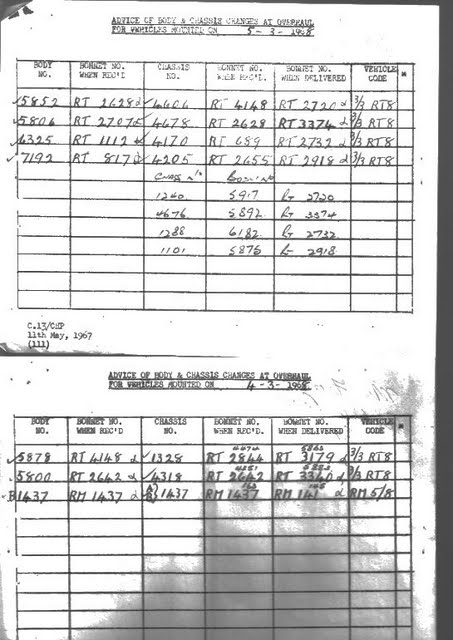 ADVICE OF BODY & CHASSIS CHANGES AT OVERHAUL
FOR VEHICLES MOUNTED ON 5-3-1968
BODY NO. BONNET NO. WHEN REC'D CHASSIS NO. BONNET NO. WHEN REC'D. BONNET NO. WHEN DELIVERED VEHICLE CODE
✓5852 RT 2628 ✓4606 RT 4148 RT 2720 3/3 RT8
✓5806 RT 2707 ✓4678 RT 2628 RT 3374 3/3 RT8
✓6325 RT 1112 ✓4170 RT 689 RT 2732 3/3 RT8
✓7192 RT 817 ✓4205 RT 2655 RT 2918 3/3 RT8
CHASS NO BODY NO
1260 5917 RT 2720
4676 5892 RT 3374
1288 6182 RT 2732
1101 5875 RT 2918
C.13/CHP
11th May, 1967
(111)
ADVICE OF BODY & CHASSIS CHANGES AT OVERHAUL
FOR VEHICLES MOUNTED ON 4-3-1968
BODY NO. BONNET NO. WHEN REC'D CHASSIS NO. BONNET NO. WHEN REC'D. BONNET NO. WHEN DELIVERED VEHICLE CODE
✓5878 RT 4148 ✓1328 RT 2844 RT 3179 3/3 RT8
✓5800 RT 2642 ✓4318 RT 2642 RT 3340 3/3 RT8
B1437 RM 1437 1437 RM 1437 RM 141 RM 5/8